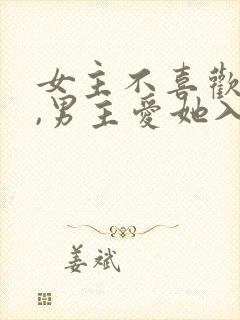 女主不喜歡
,男主愛她入
姜斌